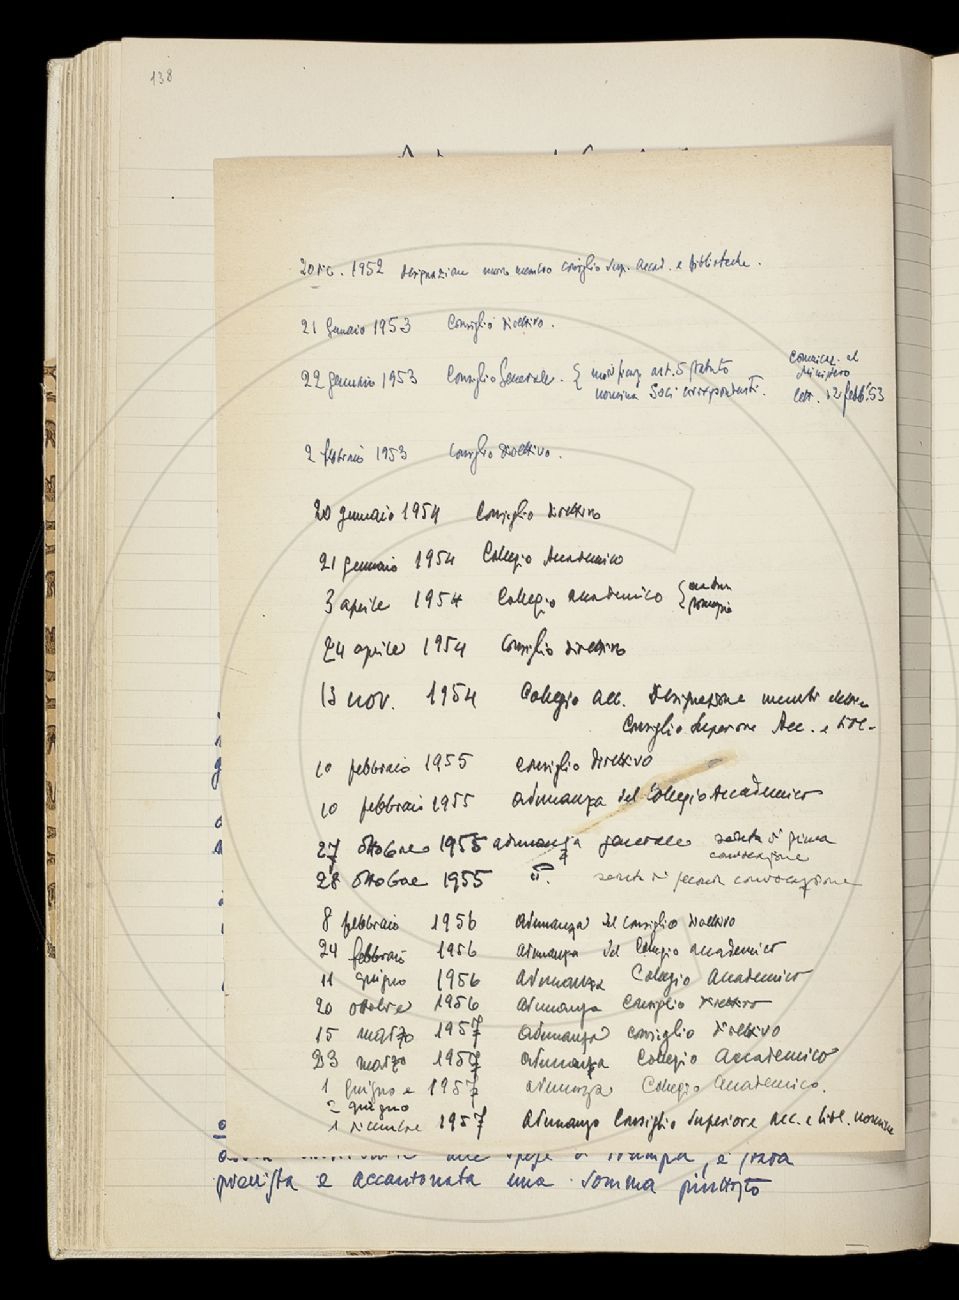 138
20 dic. 1952 designazione nuovo membro consiglio Sup. Accad. e Biblioteche.
21 Gennaio 1953 Consiglio Direttivo.
22 gennaio 1953 Consiglio Generale. { art. 5 statuto
nomina Soci corrispondenti.
Comunicaz. al
Ministero
lett. 12 febb. 53
2 febbraio 1953 Consiglio Direttivo.
20 gennaio 1954 Consiglio direttivo
21 gennaio 1954 Collegio Accademico
3 aprile 1954 Collegio accademico {
24 aprile 1954 Consiglio direttivo
13 nov. 1954 Collegio acc. Designazione membri
Consiglio Superiore Acc. e bibl.
10 febbraio 1955 Consiglio Direttivo
10 febbraio 1955 adunanza del Collegio Accademico
27 ottobre 1955 adunanza generale seduta di prima
convocazione
28 ottobre 1955 seduta di seconda convocazione
8 febbraio 1956 adunanza del consiglio direttivo
24 febbraio 1956 adunanza del Collegio accademico
11 giugno 1956 adunanza Collegio Accademico
20 ottobre 1956 adunanza Consiglio direttivo
15 marzo 1957 adunanza consiglio direttivo
23 marzo 1957 adunanza Collegio Accademico
1 giugno e 1957 adunanza Collegio Accademico.
2 giugno
1 dicembre 1957 adunanza Consiglio Superiore Acc. e bibl. nomine
alle spese di stampa, è stata
prevista e accantonata una somma piuttosto